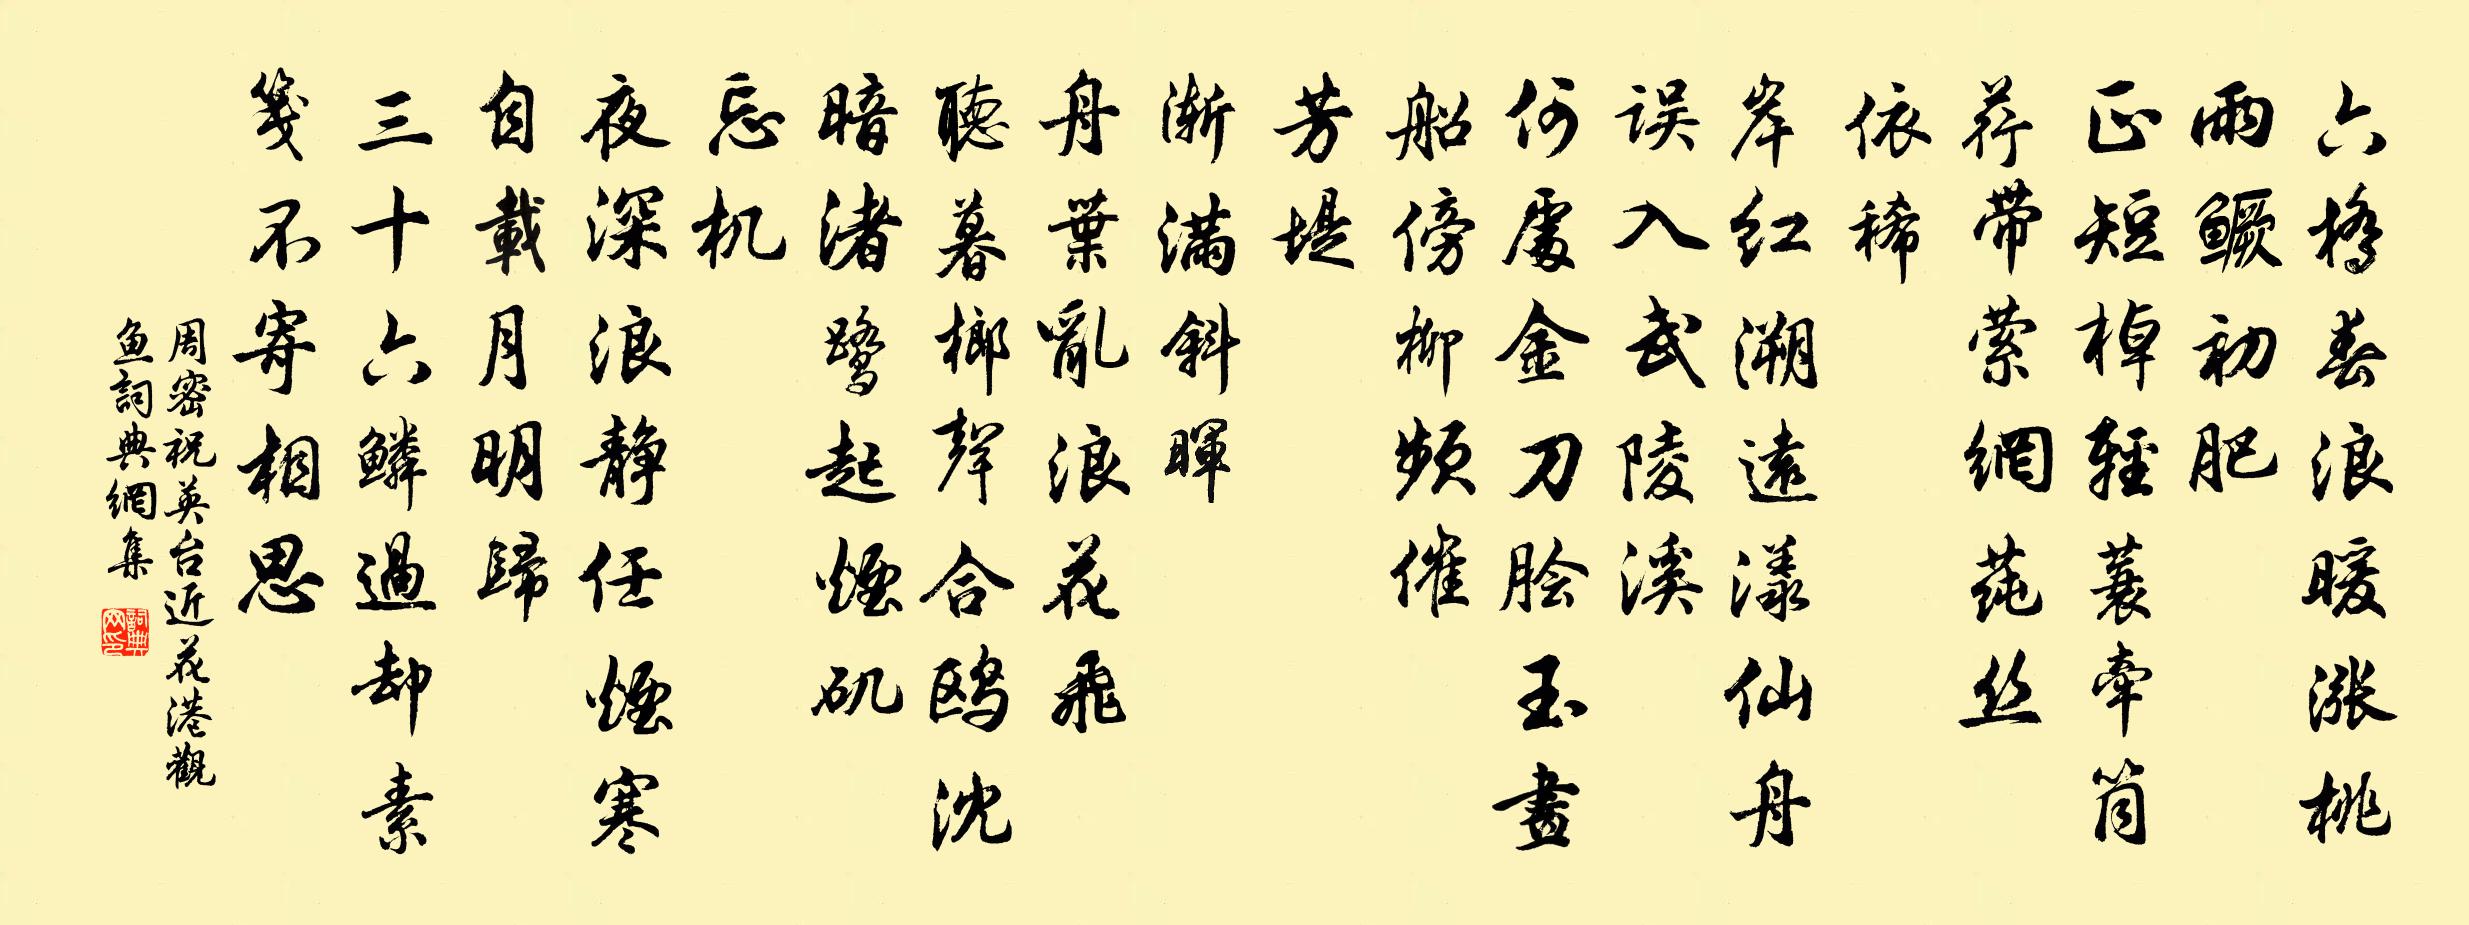 六橋春浪暖漲桃
雨鳜初肥
正短棹輕蓑牽筒
荇带萦網莼丝
依稀
岸红溯遠漾仙舟
误入武陵溪
何處金刀脍玉畫
船傍柳频催
芳堤
渐满斜暉
舟葉亂浪花飛
聽暮榔聲合鸥沈
暗渚鹭起煙矶
忘机
夜深浪静任煙寒
自載月明歸
三十六鳞過却素
笺不寄相思
周密祝英台近花港觀
魚詞典網集
詞典
网印